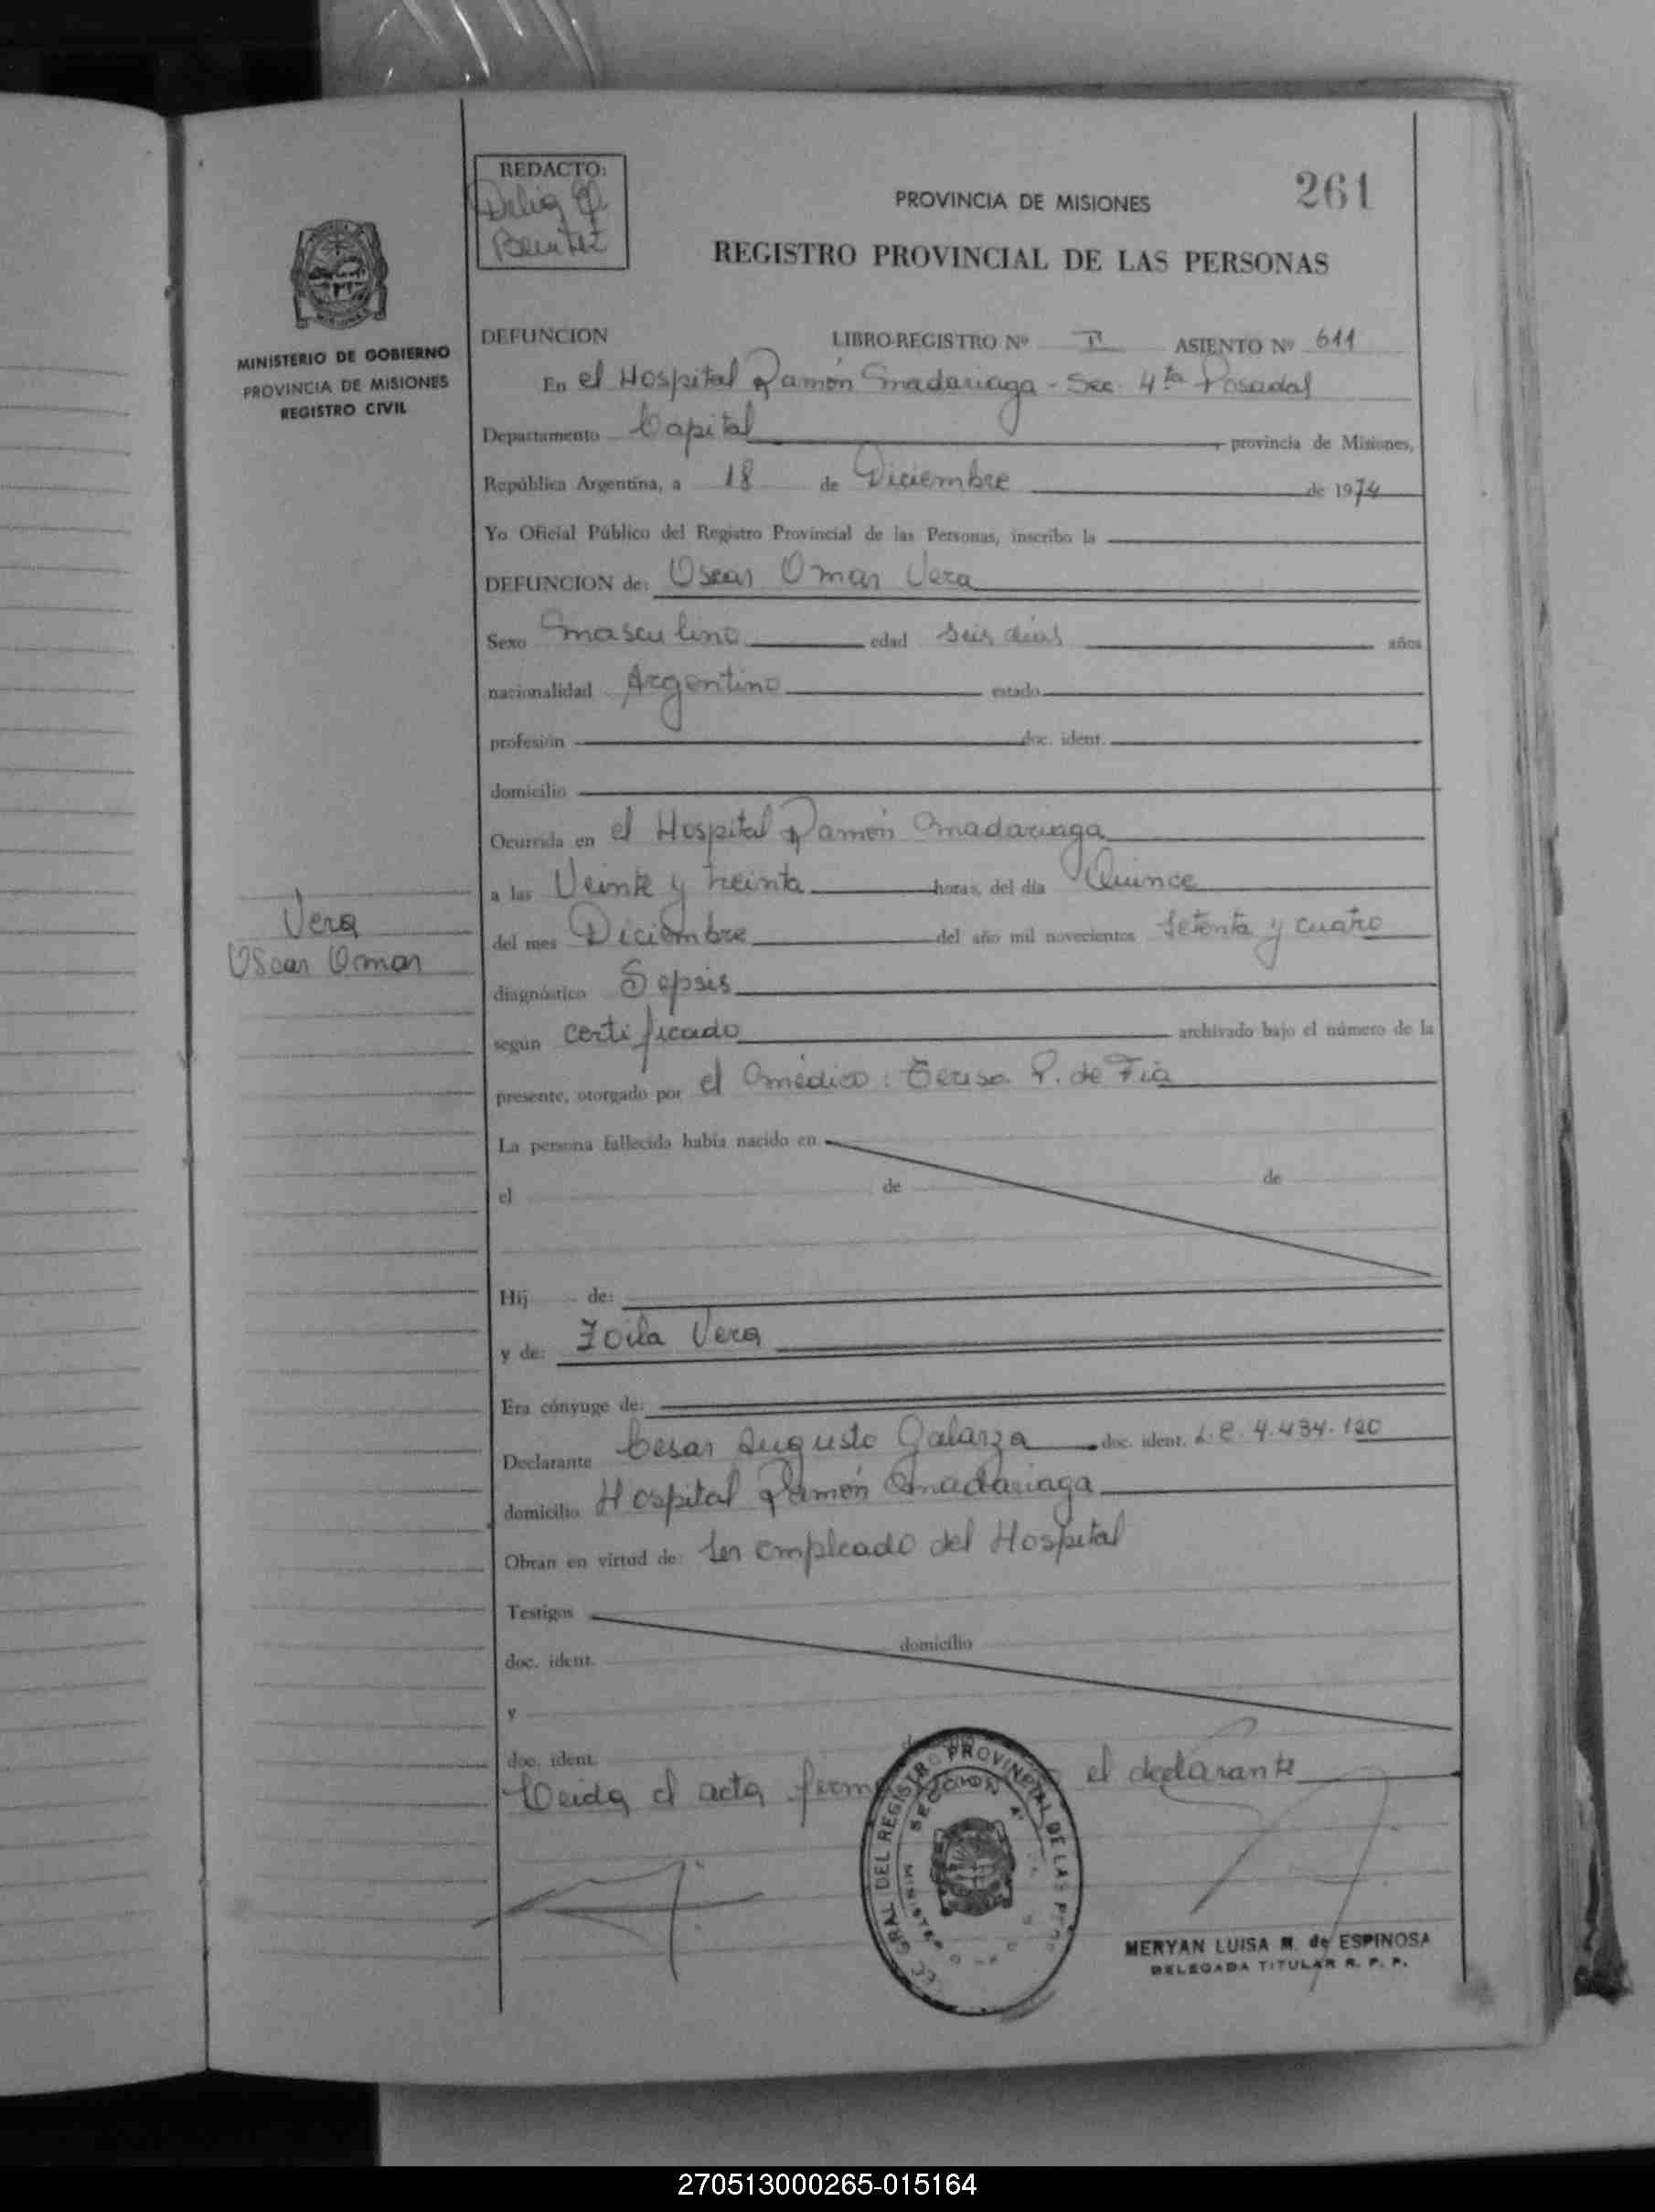 REDACTO:
Delia
Benitez
261
PROVINCIA DE MISIONES
REGISTRO PROVINCIAL DE LAS PERSONAS
MINISTERIO DE GOBIERNO
PROVINCIA DE MISIONES
REGISTRO CIVIL
DEFUNCION LIBRO-REGISTRO Nº II ASIENTO Nº 611
En el Hospital Ramón Madariaga - Sec. 4ta Posadas
Departamento Capital provincia de Misiones,
República Argentina, a 18 de Diciembre de 1974
Yo Oficial Público del Registro Provincial de las Personas, inscribo la
DEFUNCION de: Oscar Omar Vera
Sexo masculino edad seis días años
nacionalidad Argentino estado
profesión doc. ident.
domicilio
Ocurrida en el Hospital Ramón Madariaga
a las Veinte y treinta horas, del día Quince
del mes Diciembre del año mil novecientos setenta y cuatro
Vera
Oscar Omar
diagnóstico Sepsis
según certificado archivado bajo el número de la
presente, otorgado por el médico: Teresa P. de Fia
La persona fallecida había nacido en
el de de
Hij de:
y de: Zoila Vera
Era cónyuge de:
Declarante Cesar Augusto Galarza doc. ident. L.E. 4.434.120
domicilio Hospital Ramón Madariaga
Obran en virtud de ser empleado del Hospital
Testigos
doc. ident. domicilio
y
doc. ident.
Leida el acta el declarante
GRAL DEL REGISTRO PROVINCIAL DE LAS
SECCION 4ª
MERYAN LUISA M. de ESPINOSA
DELEGADA TITULAR R. P. P.
270513000265-015164